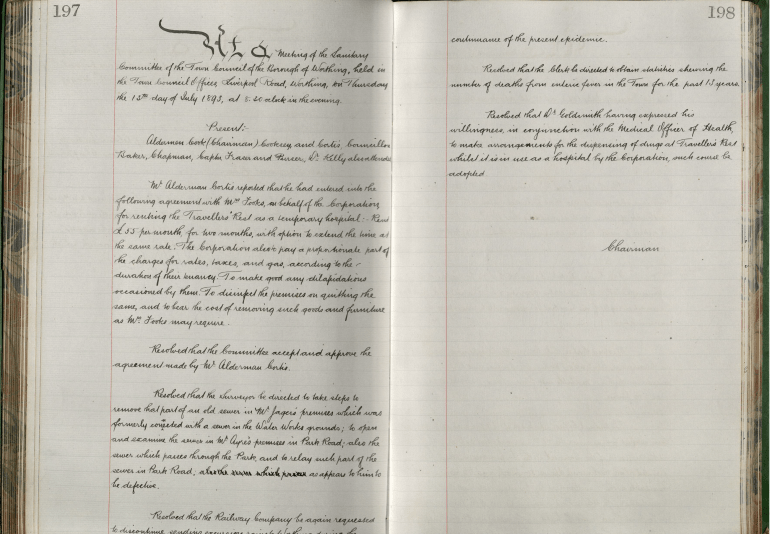 197
At a Meeting of the Sanitary
Committee of the Town Council of the Borough of Worthing, held in
the Town Council Offices, Liverpool Road, Worthing, on Thursday
the 13th day of July 1893, at 5.30 o'clock in the evening.
Present:-
Alderman Cook (Chairman) Cortis, Councillors
Baker, Chapman, Captn Fraser and Dr Kelly also attended
Mr Alderman Cortis reported that he had entered into the
following agreement with Mrs Tooks, on behalf of the Corporation,
for renting the Travellers' Rest as a temporary hospital:- Rent
£35 per month, for two months, with option to extend the time at
the same rate. The Corporation also to pay a proportionate part of
the charges for rates, taxes, and gas, according to the
duration of their tenancy. To make good any dilapidations
occasioned by them. To disinfect the premises on quitting the
same, and to bear the cost of removing such goods and furniture
as Mrs Tooks may require.
Resolved that the Committee accept and approve the
agreement made by Mr Alderman Cortis.
Resolved that the Surveyor be directed to take steps to
remove that part of an old sewer in Mr Jager's premises which was
formerly connected with a sewer in the Water Works grounds; to open
and examine the sewer in Mr Ayre's premises in Park Road; also the
sewer which passes through the Park, and to relay such part of the
sewer in Park Road, also the sewer which passes as appears to him to
be defective.
Resolved that the Railway Company be again requested
to discontinue sending excursion
198
continuance of the present epidemic.
Resolved that the Clerk be directed to obtain statistics shewing the
number of deaths from enteric fever in the Town for the past 13 years.
Resolved that Dr Goldsmith having expressed his
willingness, in conjunction with the Medical Officer of Health,
to make arrangements for the dispensing of drugs at Traveller's Rest
whilst it is in use as a hospital by the Corporation, such course be
adopted
Chairman